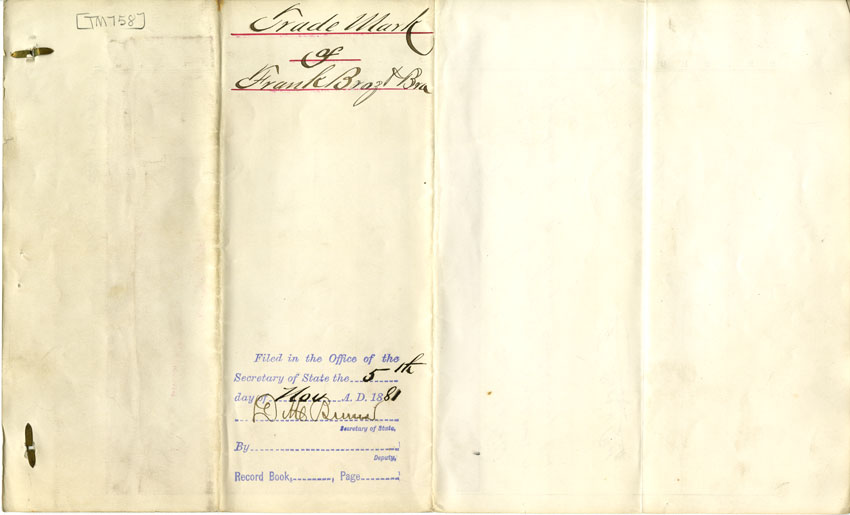 [TM758]
Trade Mark
of
Frank Braz & Bro
Filed in the Office of the
Secretary of State the 5th
day of Nov. A. D. 1881
Secretary of State,
By
Deputy,
Record Book, , Page